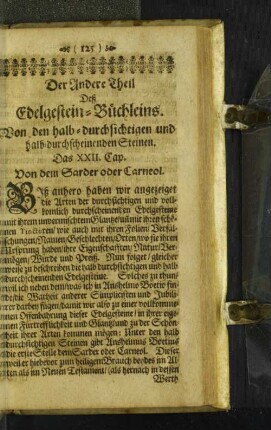 ( 125 )
Der Andere Theil
Deß
Edelgestein-Büchleins.
Von den halb-durchsichtigen und
halb-durchscheinenden Steinen.
Das XXII. Cap.
Von dem Sarder oder Carneol.
Biß anhero haben wir angezeiget
die Arten der durchsichtigen und voll-
kömlich durchscheinenten Edelgesteine
mit ihrem unvermischten Glantz unnd ihren schö-
nen Tincturen/ wie auch mit ihren Folien/ Verfäl-
schungen/ Namen/ Geschlechten/ Orten/ wo sie ihren
Ursprung haben/ ihre Eigenschafften/ Natur/ Ver-
mögen/ Würde und Preiß. Nun folget/ gleicher
weise zu beschreiben die halb durchsichtigen und halb
durchscheinenden Edelgesteine. Solches zu thun/
will ich neben dem/ was ich in Anshelmo Boetio fin-
de/ die Warheit anderer Scribenten und Jubili-
rer darbey fügen/ damit wir also zu einer vollkomme-
nen Offenbahrung dieser Edelgesteine/ in ihrer eige-
nen Fürtrefflichkeit und Glantz/ und zu der Schön-
heit ihrer Arten kommen mögen: Unter den halb
durchsichtigen Steinen gibt Anshelmus Boetius
die erste Stelle dem Sarder oder Carneol. Dieser
weil er hiebevor zum heiligen Brauch beydes im Al-
ten als im Neuen Testament/ (als hernach in dessen
Werth